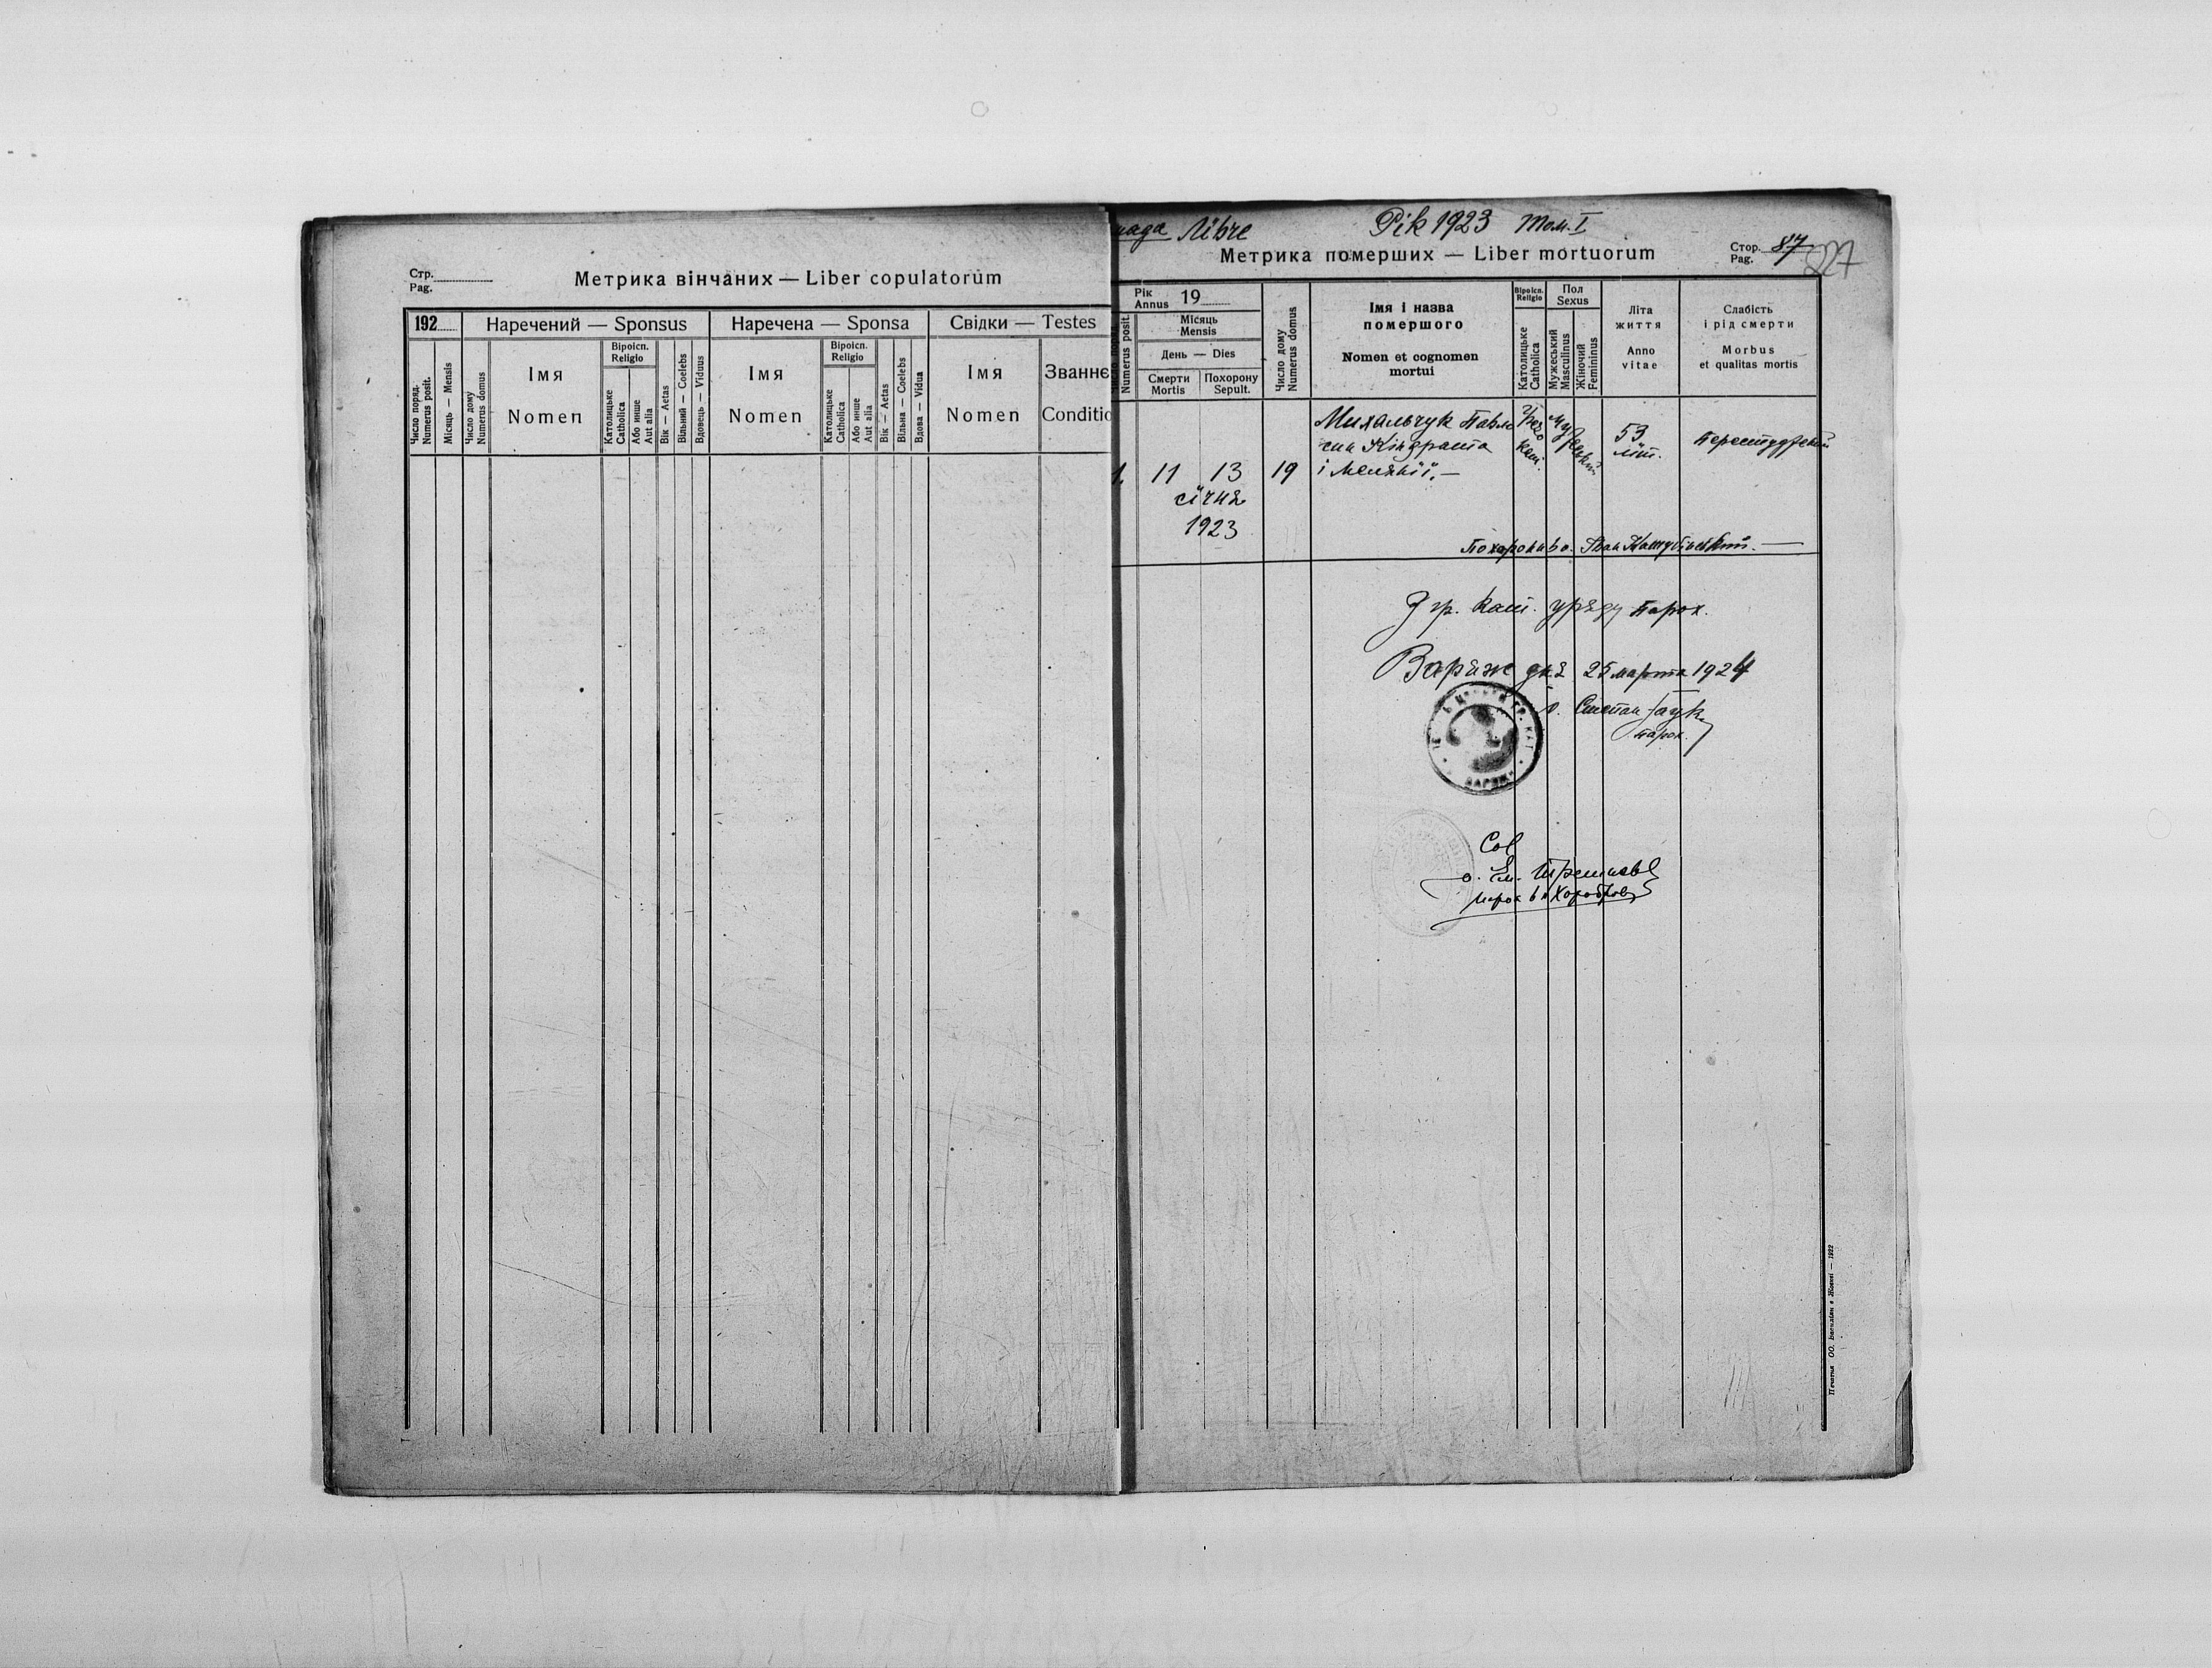 Стр.
Pag.
Метрика вінчаних — Liber copulatorum
192
Наречений — Sponsus
Наречена — Sponsa
Свідки — Testes
Число поряд.
Numerus posit.
Місяць — Mensis
Число дому
Numerus domus
Імя
Nomen
Віроісп.
Religio
Католицьке
Catholica
Або инше
Aut alia
Вік — Aetas
Вільний — Coelebs
Вдовець — Viduus
Імя
Nomen
Віроісп.
Religio
Католицьке
Catholica
Або инше
Aut alia
Вік — Aetas
Вільна — Coelebs
Вдова — Vidua
Імя
Nomen
Званнє
Conditio
мада Лївче Рік 1923 Том. I
Метрика померших — Liber mortuorum
Стор. 87
Pag.
827
Numerus posit.
Рік
Annus 19
Місяць
Mensis
День — Dies
Смерти
Mortis
Похорону
Sepult.
Число дому
Numerus domus
Імя і назва
помершого
Nomen et cognomen
mortui
Віроісп.
Religio
Католицьке
Catholica
Пол
Sexus
Мужеський
Masculinus
Жіночий
Femininus
Літа
життя
Anno
vitae
Слабість
і рід смерти
Morbus
et qualitas mortis
1. 11 13
січня
1923
19
Михальчук Павло
син Кіндрата
і Меланії. —
Греко
кат.
Мужеський
53
літ.
Похоронив о. Іван
З гр. кат. уряду парох.
Варяж дня 25 марта 1924
о. Степан
парох.
о. Ем.
парох в
Печатня ОО. Василіян в Жовкві — 1922